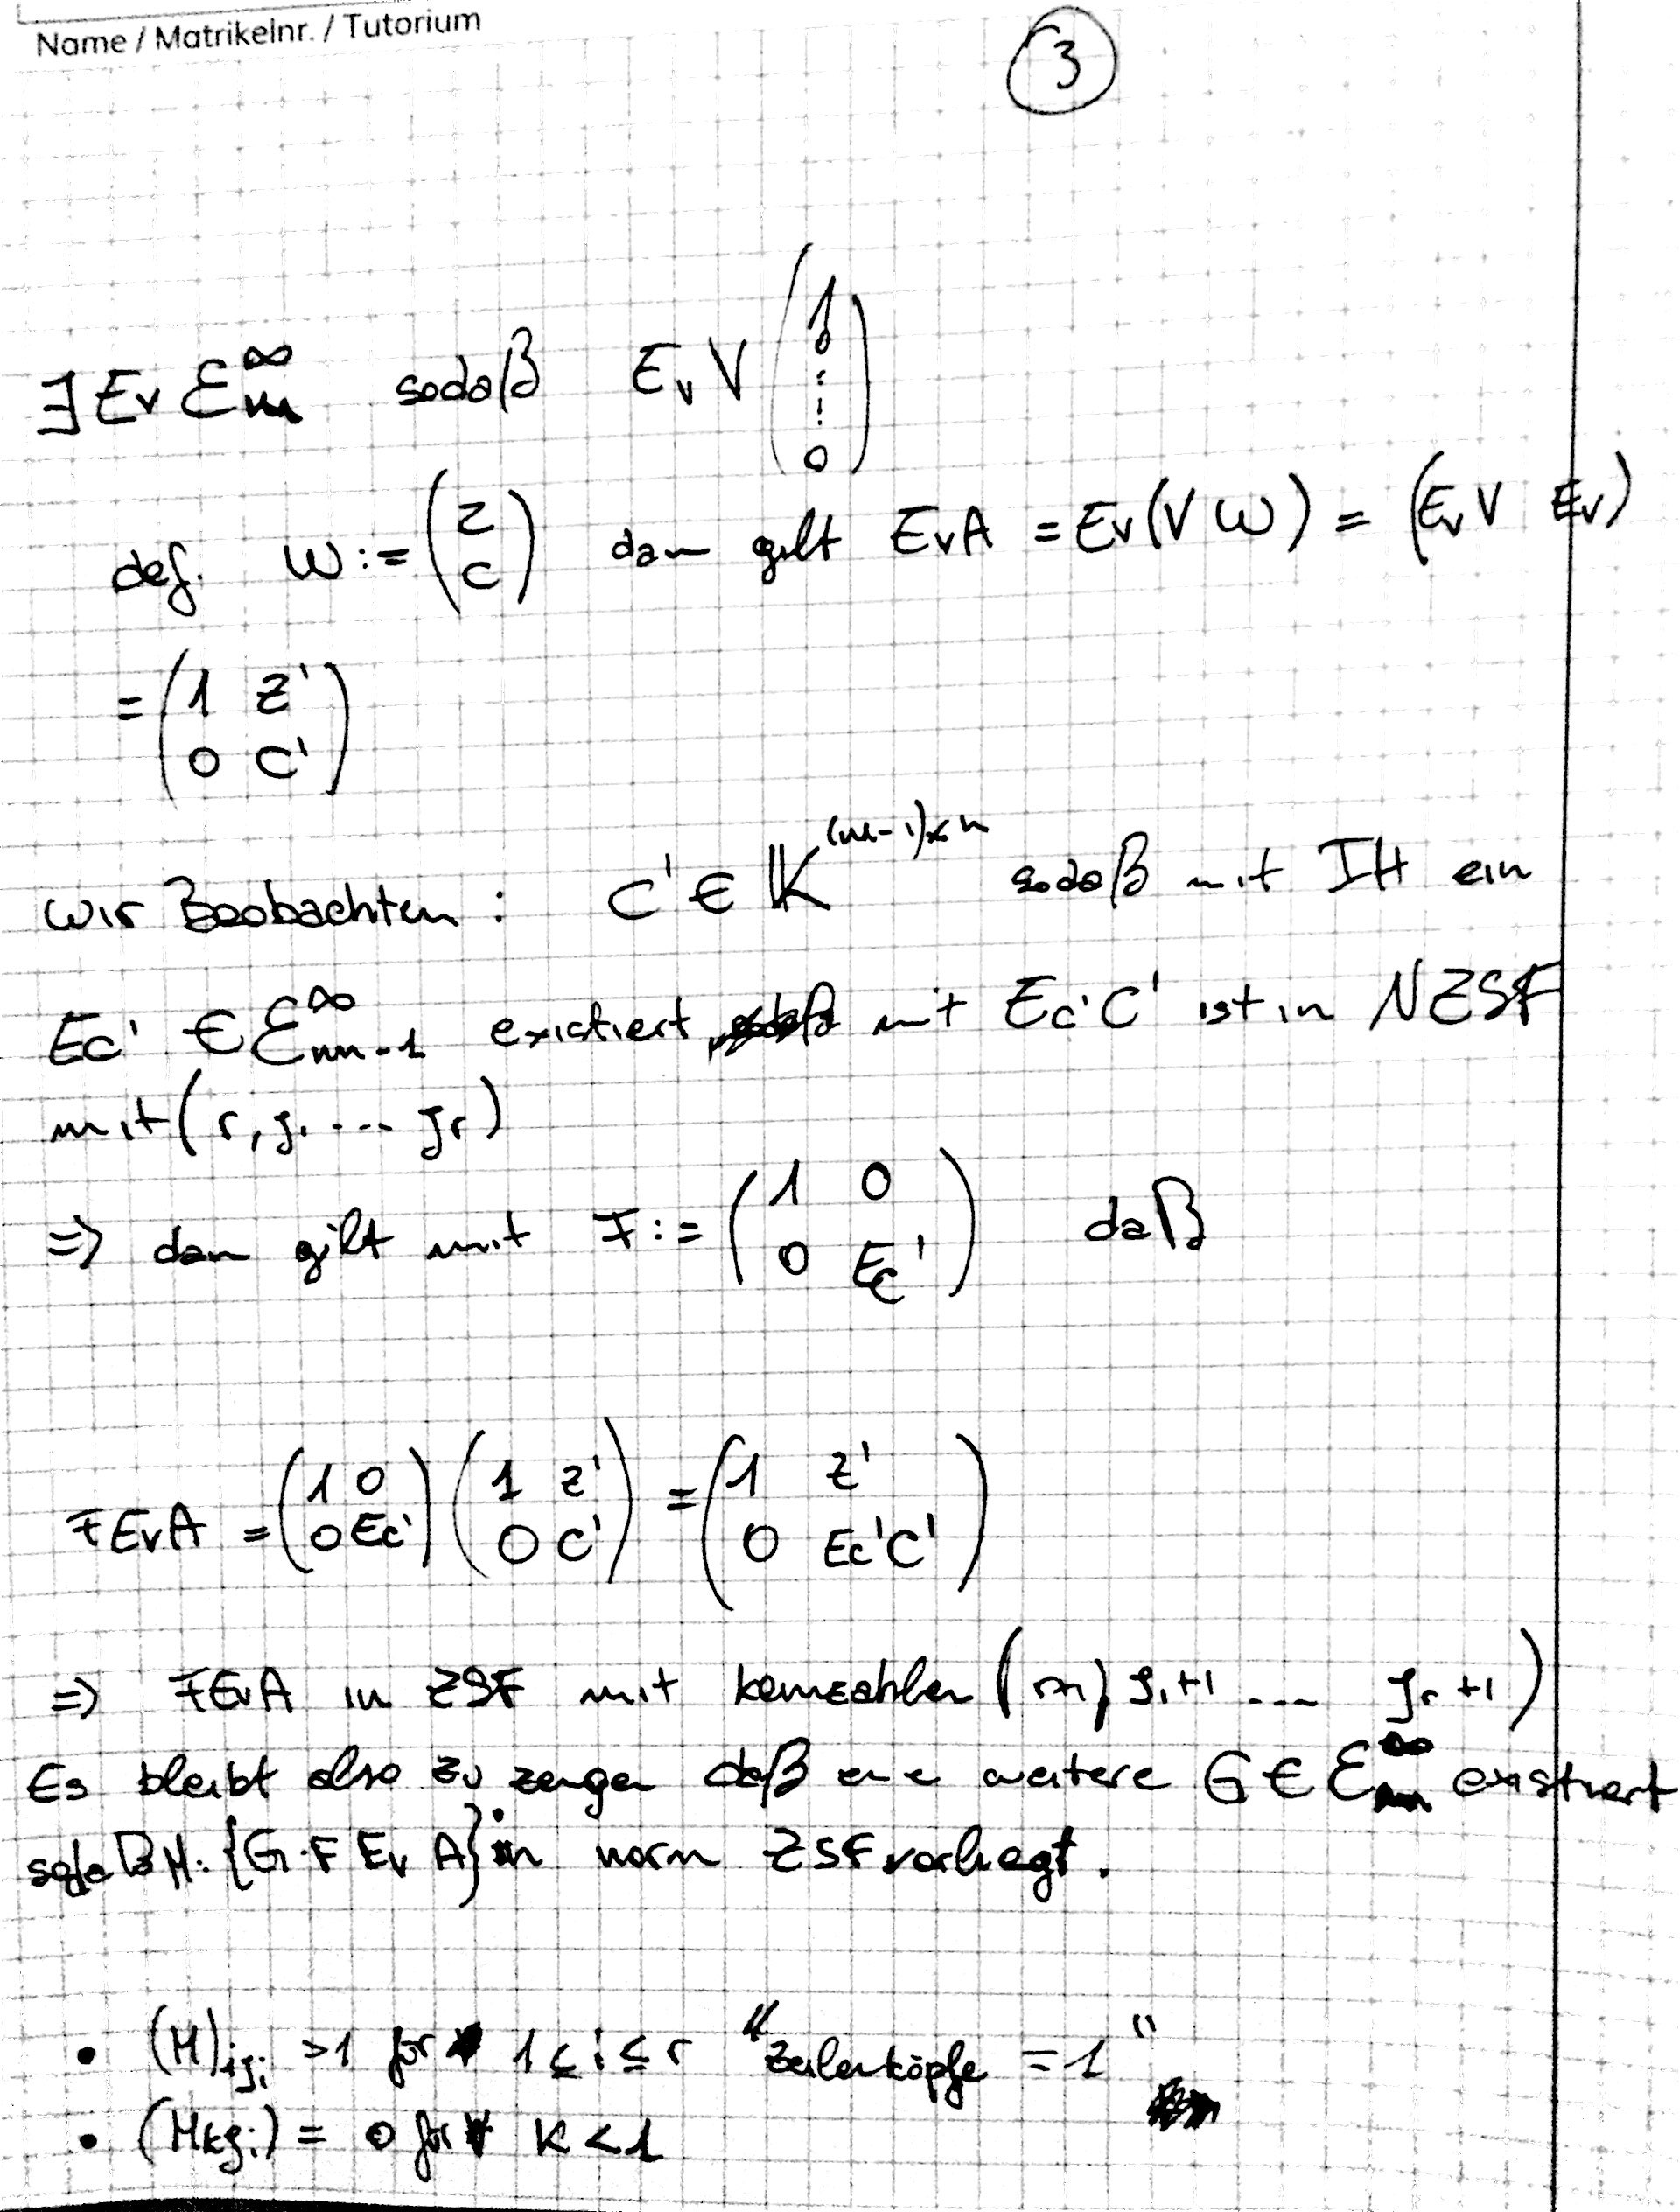 Name / Matrikelnr. / Tutorium
3
∃ E_v ℰ_m^∞ sodaß E_v V (1 0 ⋮ 0)
def. W := (z c) dan gilt E_v A = E_v (V W) = (E_v V E_v)
= (1 z' 0 C')
wir Beobachten : C' ∈ 𝕂^{(m-1)×n} sodaß mit IH ein
E_c' ∈ ℰ_{m-1}^∞ existiert mit E_c' C' ist in NZSF
mit (r, j_1 ... j_r)
=> dan gilt mit F := (1 0 0 E_c') daß
F E_v A = (1 0 0 E_c') (1 z' 0 C') = (1 z' 0 E_c' C')
=> F E_v A in ZSF mit kennzahlen ( j_1+1 ... j_r+1)
Es bleibt also zu zeigen daß eine weitere G ∈ ℰ_m^∞ existiert
sodaß M: {G·F E_v A} in norm ZSF vorliegt.
• (M)_{ij_i} >1 for 1 ≤ i ≤ r "zeilenköpfe = 1"
• (M_{kj_i}) = 0 for K < 1